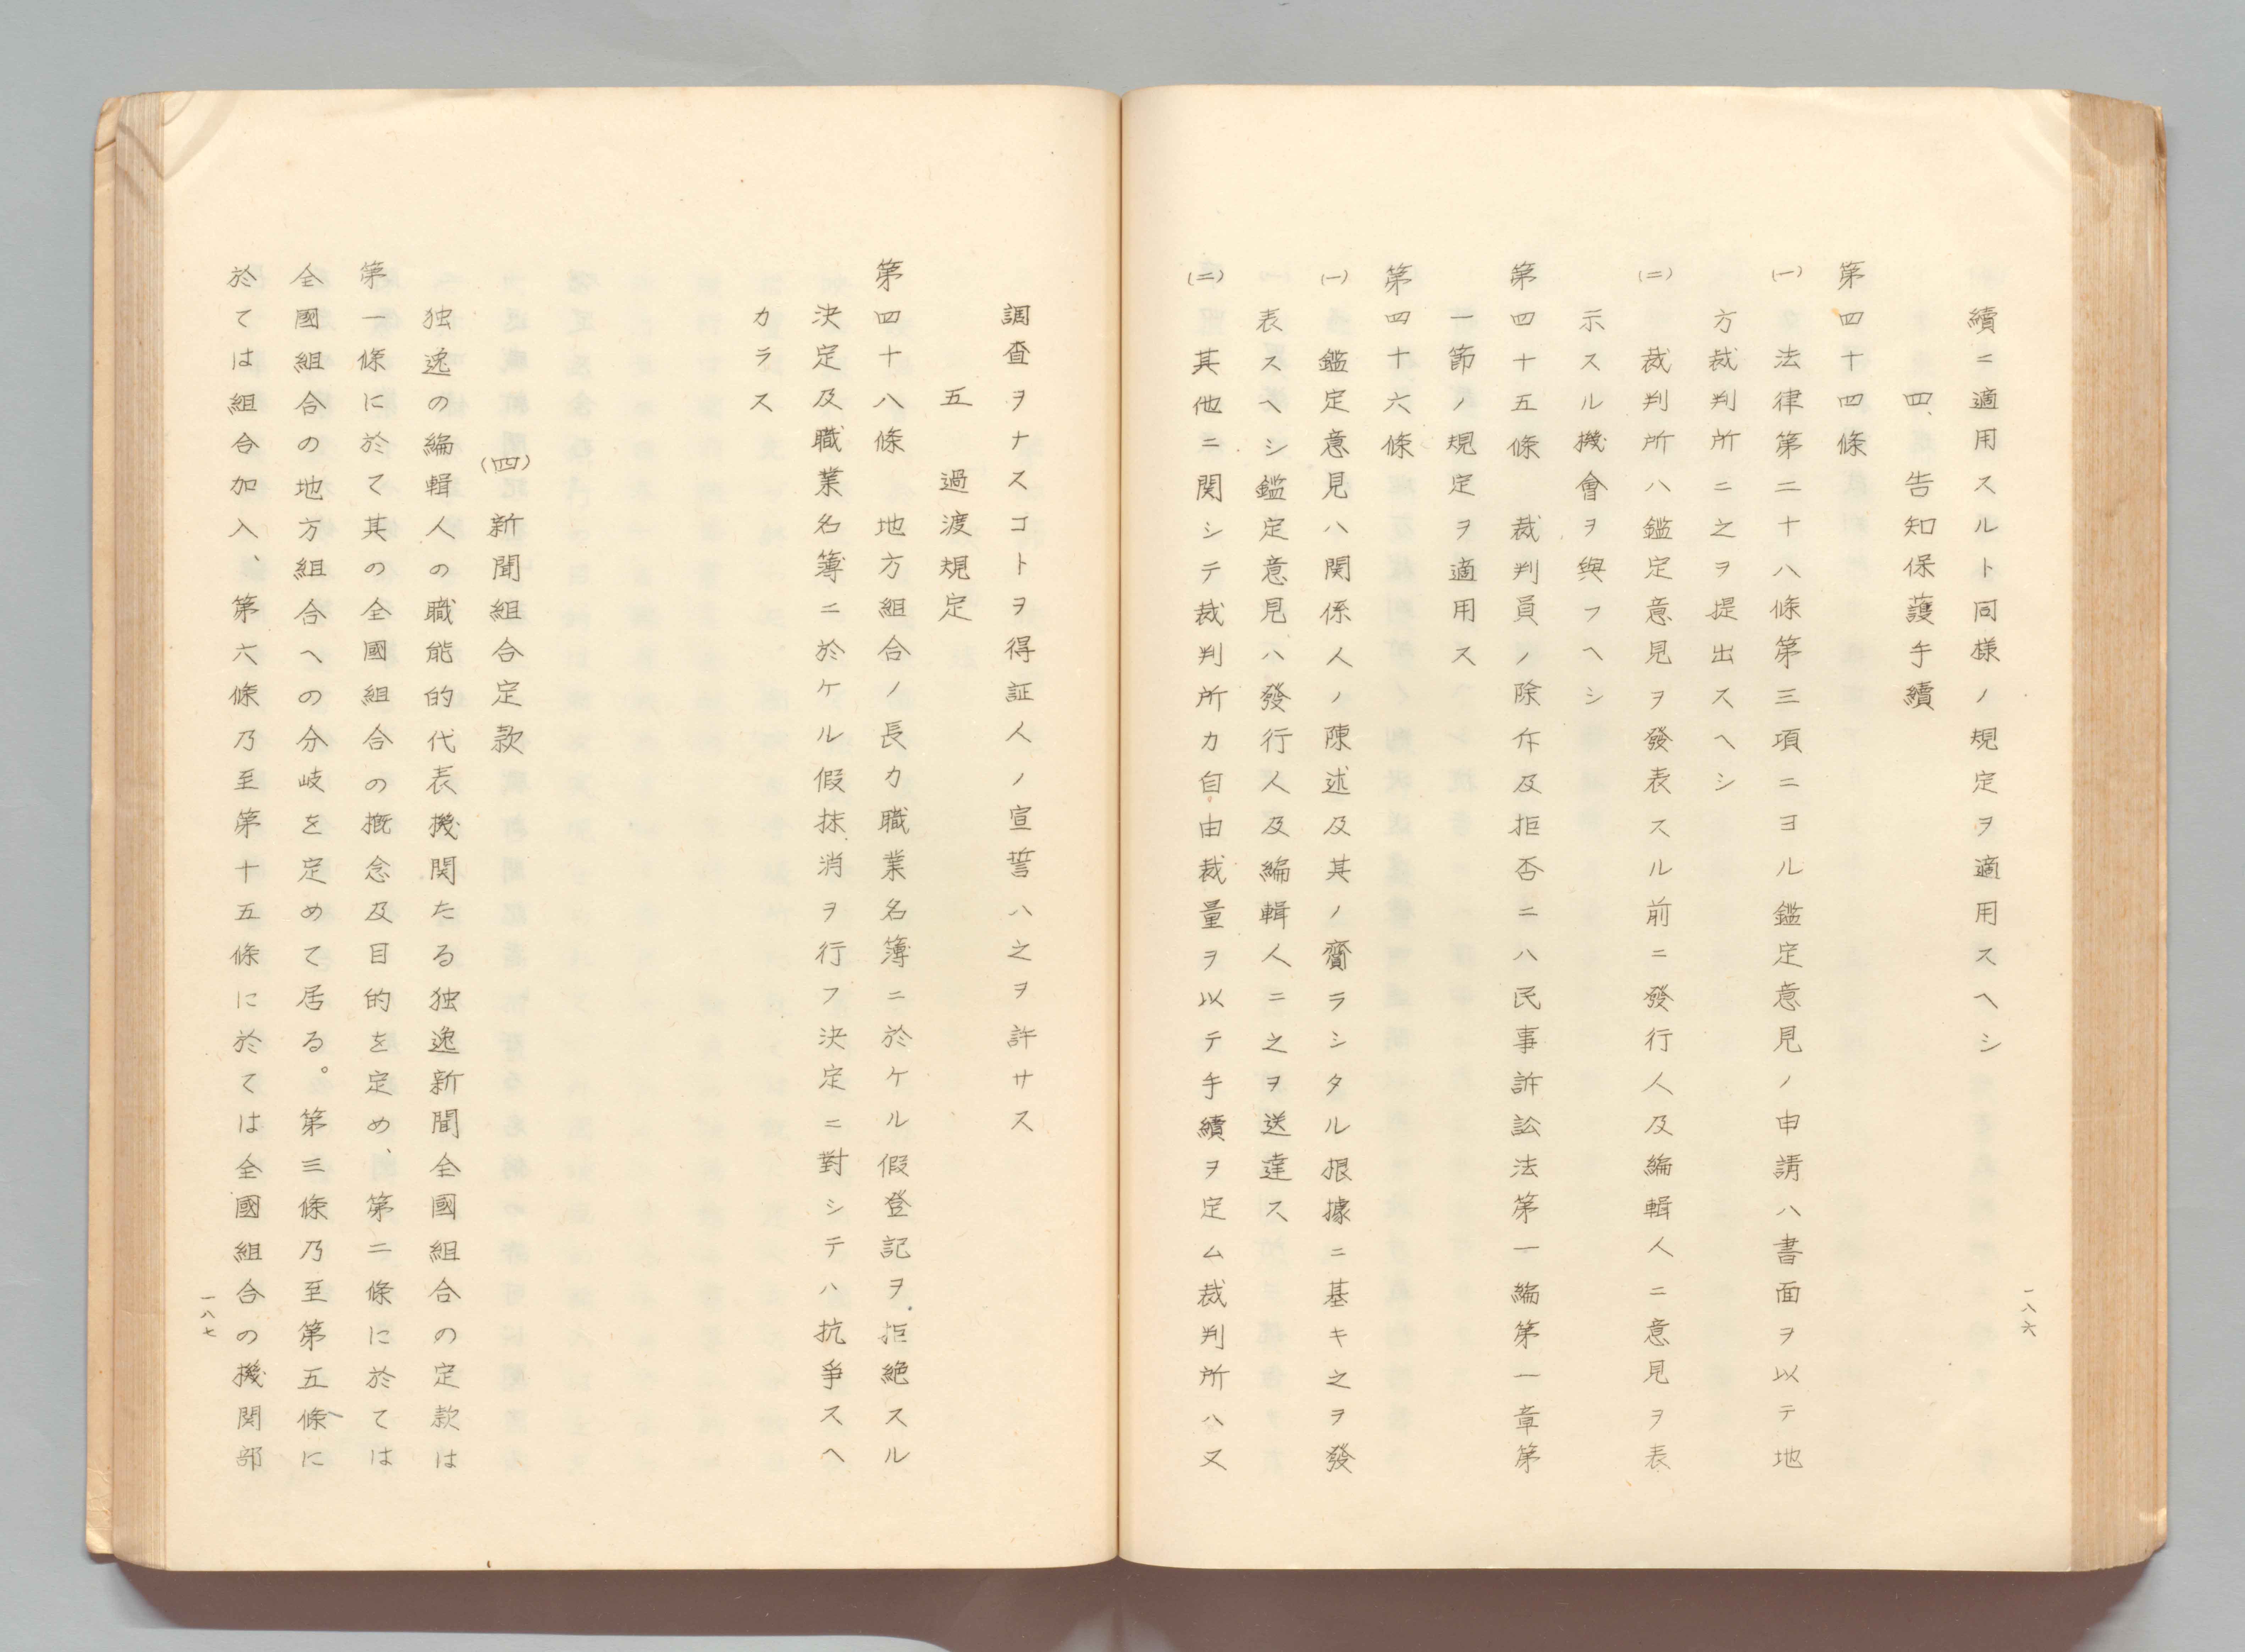 續ニ適用スルト同様ノ規定ヲ適用スヘシ
四、告知保護手續
第四十四條
(一)法律第二十八條第三項ニヨル鑑定意見ノ申請ハ書面ヲ以テ地
方裁判所ニ之ヲ提出スヘシ
(二)裁判所ハ鑑定意見ヲ發表スル前ニ發行人及編輯人ニ意見ヲ表
示スル機會ヲ與フヘシ
第四十五條 裁判員ノ除斥及拒否ニハ民事訴訟法第一編第一章第
一節ノ規定ヲ適用ス
第四十六條
(一)鑑定意見ハ関係人ノ陳述及其ノ齎ラシタル根據ニ基キ之ヲ發
表スヘシ鑑定意見ハ發行人及編輯人ニ之ヲ送達ス
(二)其他ニ関シテ裁判所カ自由裁量ヲ以テ手續ヲ定ム裁判所ハ又
一八六
調査ヲナスゴトヲ得証人ノ宣誓ハ之ヲ許サス
五 過渡規定
第四十八條 地方組合ノ長カ職業名簿ニ於ケル假登記ヲ拒絶スル
決定及職業名簿ニ於ケル假抹消ヲ行フ決定ニ對シテハ抗爭スヘ
カラス
(四)新聞組合定款
独逸の編輯人の職能的代表機関たる独逸新聞全國組合の定款は
第一條に於て其の全國組合の概念及目的を定め、第二條に於ては
全國組合の地方組合への分岐を定めて居る。第三條乃至第五條に
於ては組合加入、第六條乃至第十五條に於ては全國組合の機関部
一八七